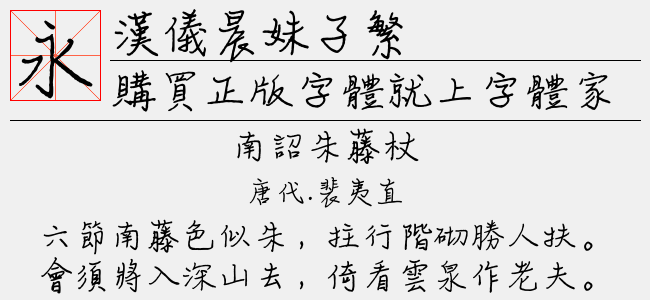 永
漢儀晨妹子繁
購買正版字體就上字體家
南詔朱藤杖
唐代.裴夷直
六節南藤色似朱，拄行階砌勝人扶。
會須將入深山去，倚看雲泉作老夫。